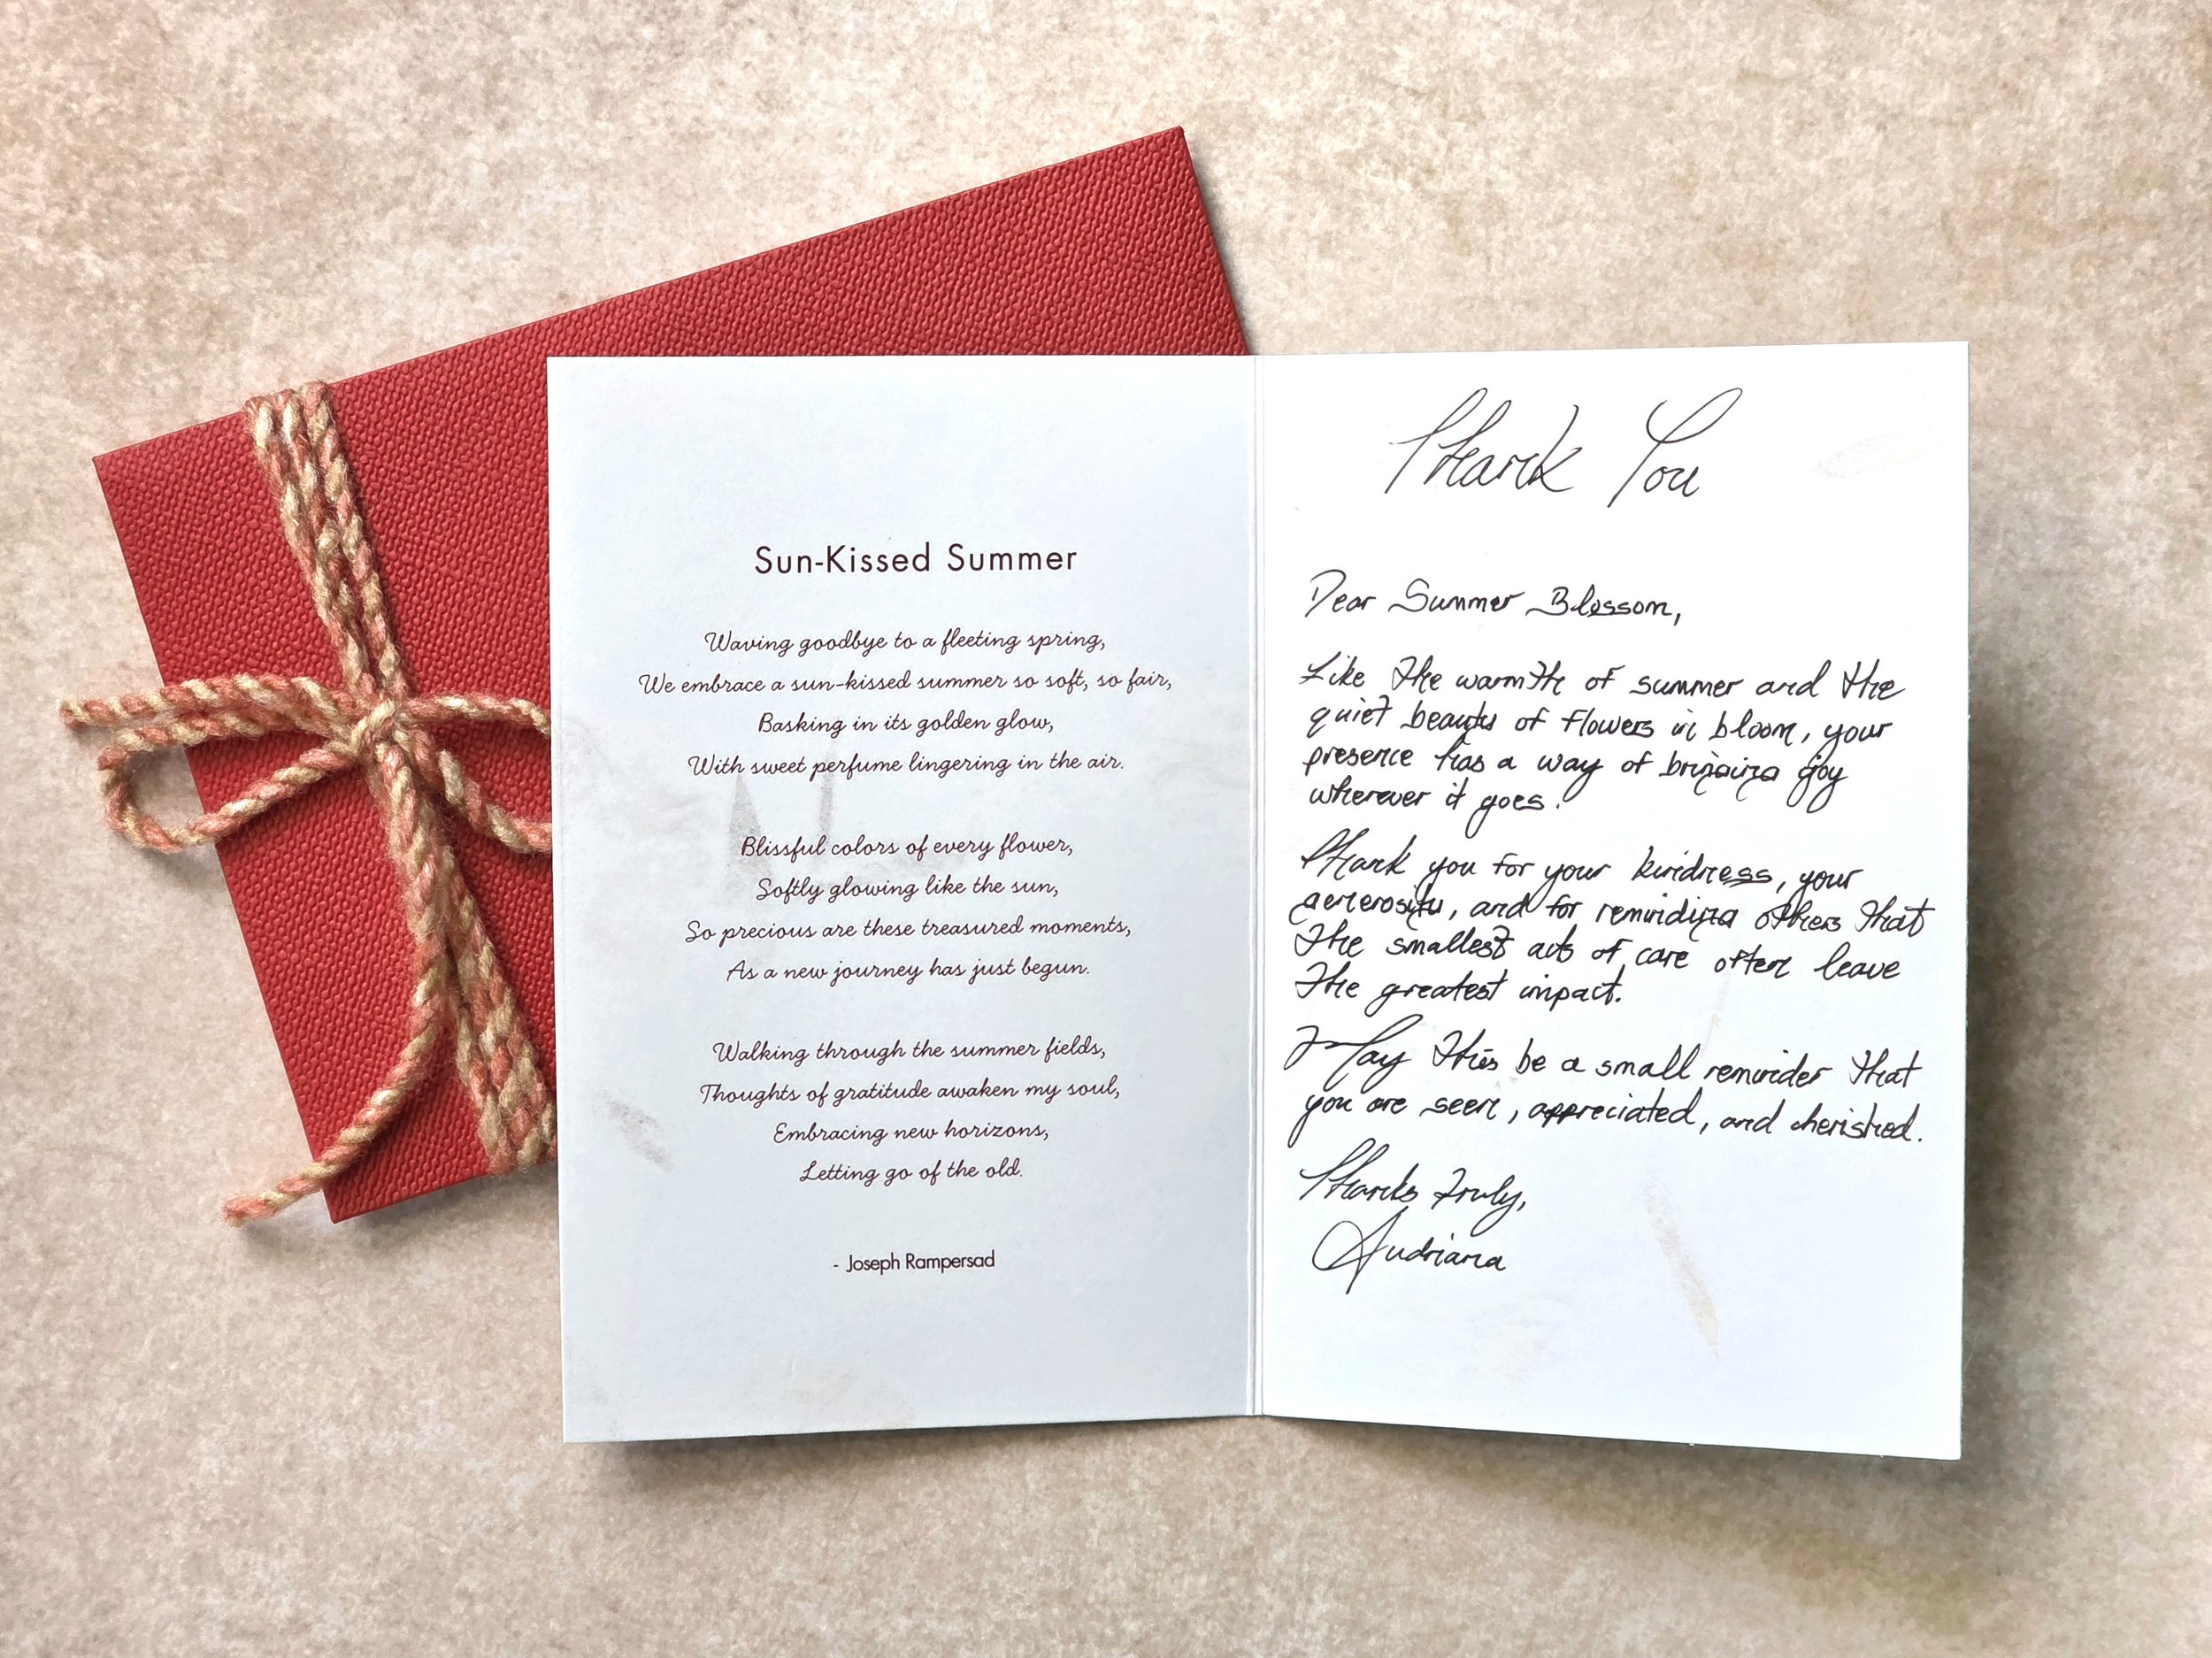 Sun-Kissed Summer
Waving goodbye to a fleeting spring,
We embrace a sun-kissed summer so soft, so fair,
Basking in its golden glow,
With sweet perfume lingering in the air.
Blissful colors of every flower,
Softly glowing like the sun,
So precious are these treasured moments,
As a new journey has just begun.
Walking through the summer fields,
Thoughts of gratitude awaken my soul,
Embracing new horizons,
Letting go of the old.
- Joseph Rampersad
Thank You
Dear Summer Blossom,
Like the warmth of summer and the
quiet beauty of flowers in bloom, your
presence has a way of bringing joy
wherever it goes.
Thank you for your kindness, your
generosity, and for reminding others that
the smallest acts of care often leave
the greatest impact.
May this be a small reminder that
you are seen, appreciated, and cherished.
Thanks truly,
Audriana